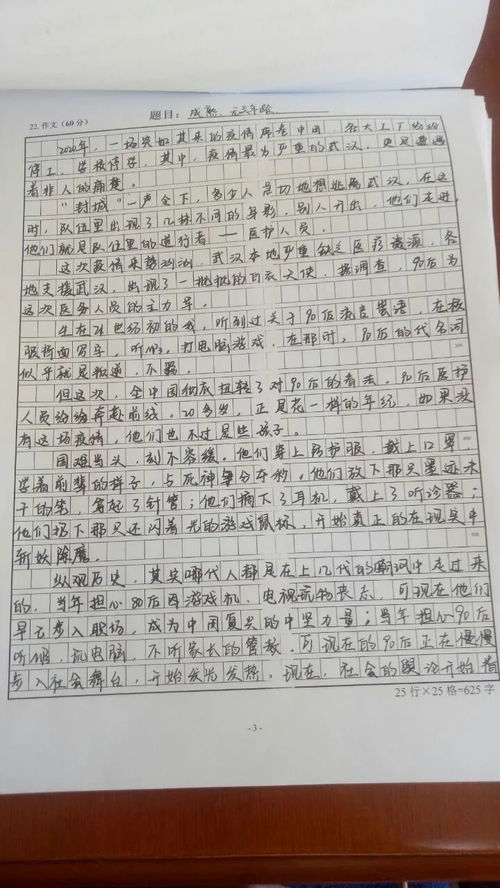 22. 作文(60分) 题目: 成熟,无关年龄
2020年,一场突如其来的疫情席卷中国,各大工厂纷纷
停工,学校停学,其中,疫情最为严重的武汉,更是遭遇
着非人的痛楚。
“封城”一声令下,多少人急切地想逃离武汉,在这
时,队伍里出现了几抹不同的身影,别人开出,他们走进,
他们就是队伍里的逆行者——医护人员。
这次疫情来势汹汹,武汉本地严重缺乏医疗资源,各
地支援武汉,出现了一批批的白衣天使,据调查,90后为
这次医务人员的主力军。
生在21世纪初的我,听到过关于90后流言蜚语,在校
服背面写字,听MP3,打电脑游戏,在那时,90后的代名词
似乎就是叛逆,不羁。
但这次,全中国彻底扭转了对90后的看法,90后医护
人员纷纷奔赴前线。20多岁,正是花一样的年纪,如果没
有这场疫情,他们也不过是些孩子。
国难当头,刻不容缓。他们穿上防护服,戴上口罩,
学着前辈的样子,与死神争分夺秒。他们放下那只墨迹未
干的笔,拿起了针管;他们摘下了耳机,戴上了听诊器;
他们扔下那只还闪着光的游戏鼠标,开始真正的在现实中
斩妖除魔。
纵观历史,其实哪代人都是在上几代的嘲讽中走过来
的,当年担心80后因游戏机、电视玩物丧志,可现在他们
早已步入职场,成为中国复兴的中坚力量;当年担心90后
听MP3,玩电脑,不听家长的管教,可现在的90后正在慢慢
步入社会舞台,开始发光发热。现在,社会的舆论开始看
25行×25格=625字
-3-